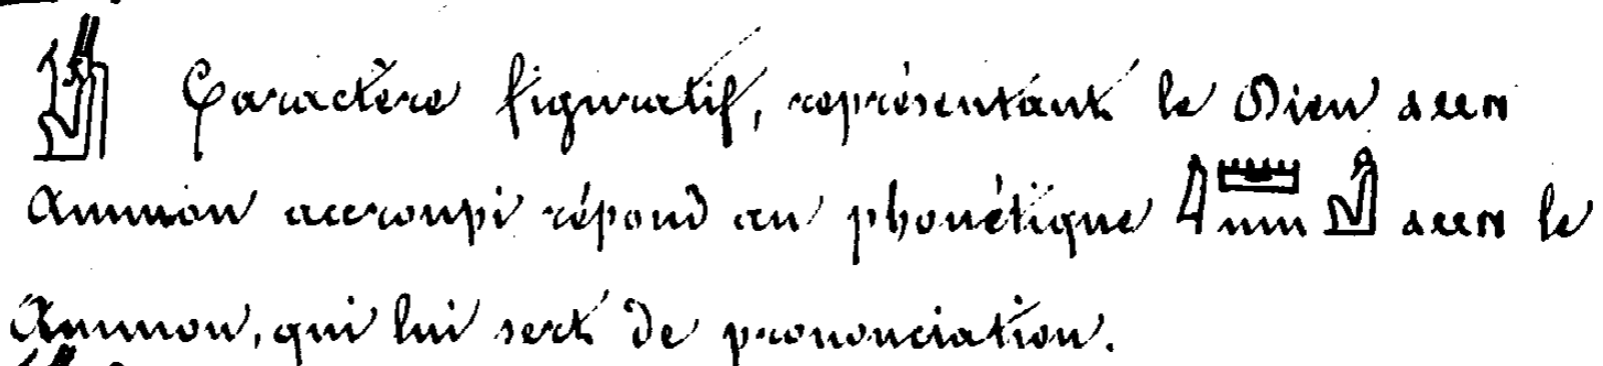 𓁩 Caractère figuratif, représentant le Dieu ⲁⲙⲛ
Ammon accroupi répond au phonétique 𓇋𓏠𓈖𓀭 ⲁⲙⲛ le
Ammon, qui lui sert de prononciation.